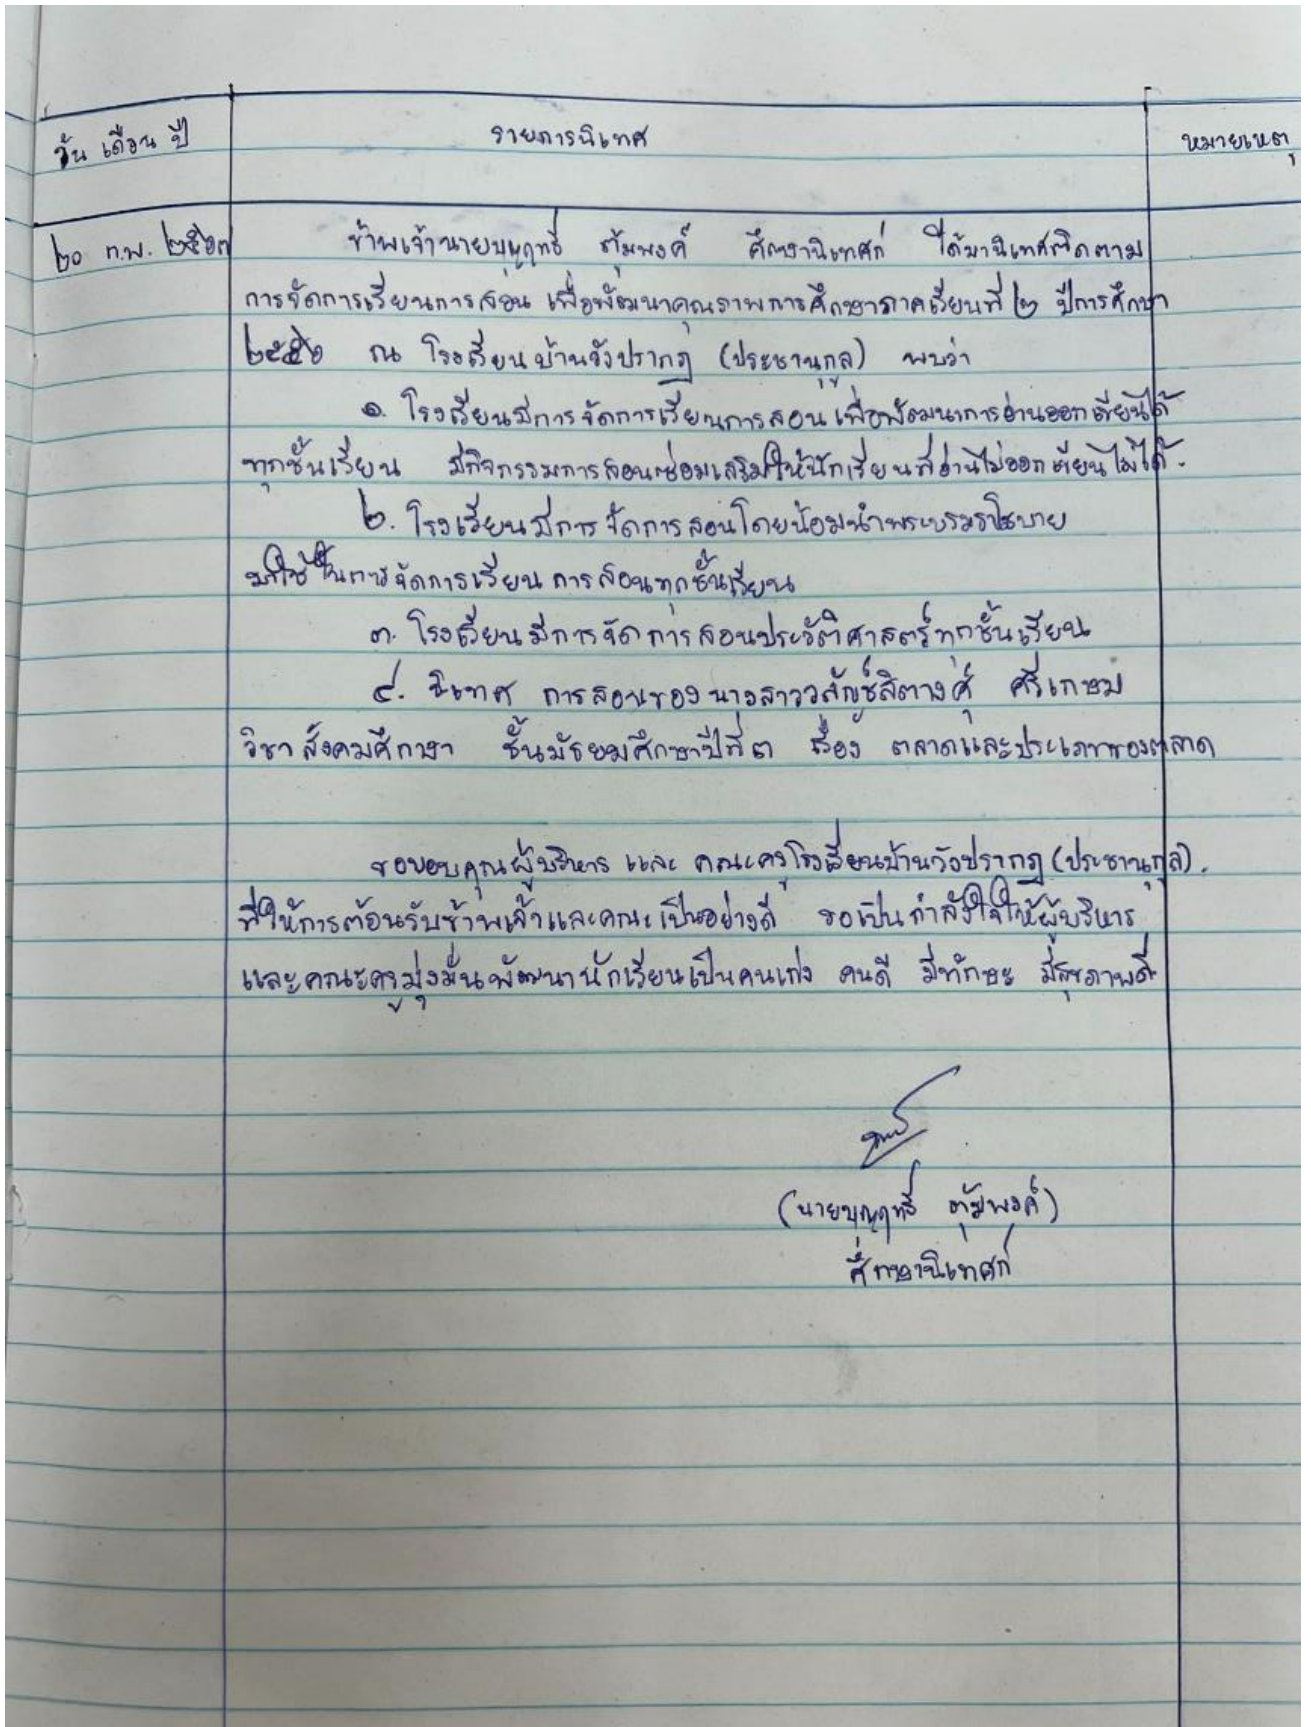 วัน เดือน ปี รายการนิเทศ หมายเหตุ
๒๐ ก.พ. ๒๕๖๗ ข้าพเจ้านายบุญฤทธิ์ ศึกษานิเทศก์ ได้มานิเทศติดตาม
การจัดการเรียนการสอน เพื่อพัฒนาคุณภาพการศึกษาภาคเรียนที่ ๒ ปีการศึกษา
๒๕๖๖ ณ โรงเรียนบ้านวังปรากฎ (ประชานุกูล) พบว่า
๑. โรงเรียนมีการจัดการเรียนการสอน เพื่อพัฒนาการอ่านออกเขียนได้
ทุกชั้นเรียน มีกิจกรรมการสอนซ่อมเสริมให้นักเรียนที่อ่านไม่ออกเขียนไม่ได้.
๒. โรงเรียนมีการจัดการสอนโดยน้อมนำพระบรมราโชบาย
มาใช้ในการจัดการเรียนการสอนทุกชั้นเรียน
๓. โรงเรียนมีการจัดการสอนประวัติศาสตร์ทุกชั้นเรียน
๔. นิเทศ การสอนของ นางสาววลัญช์สิตางศุ์ ศรีเกษม
วิชา สังคมศึกษา ชั้นมัธยมศึกษาปีที่ ๓ เรื่อง ตลาดและประเภทของตลาด
ขอขอบคุณผู้บริหาร และ คณะครูโรงเรียนบ้านวังปรากฎ (ประชานุกูล).
ที่ให้การต้อนรับข้าพเจ้าและคณะเป็นอย่างดี ขอเป็นกำลังใจให้ผู้บริหาร
และคณะครูมุ่งมั่นพัฒนานักเรียนเป็นคนเก่ง คนดี มีทักษะ มีสุขภาพดี
(นายบุญฤทธิ์
ศึกษานิเทศก์